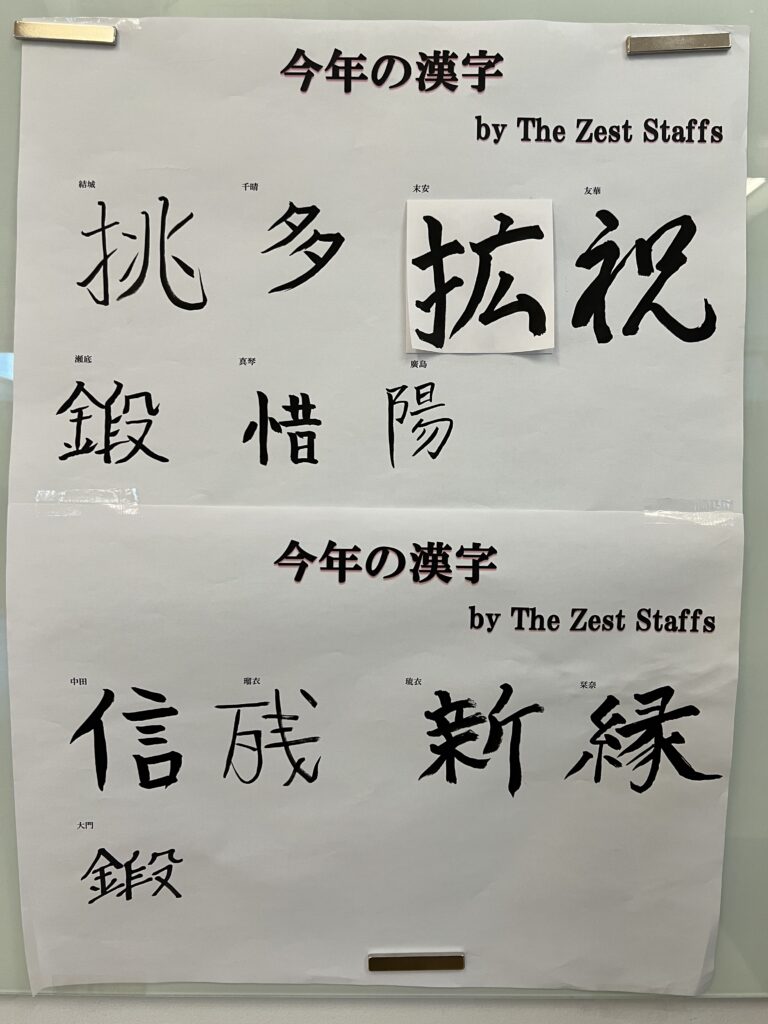 今年の漢字
by The Zest Staffs
結城 千晴 末安 友華
挑 多 拡 祝
瀬底 真琴 廣島
鍛 惜 陽
今年の漢字
by The Zest Staffs
中田 瑠衣 琉衣 栞奈
信 残 新 縁
大門
鍛